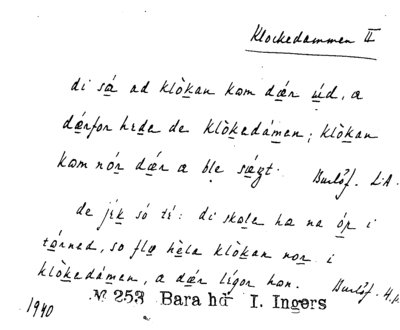 Klockedammen II
di sá ad klòkan kom dær úd, a
dærfor hede de klòkedámen; klòkan
kom nór dær a ble ságt. Burlöf. L.A.
de jik só té: di skole ha na óp i
tórned, so flø hèla klòkan nor i
klòkedámen, a dær lígor hon. Burlöf. H.H.
1940
№ 253 Bara hd I. Ingers